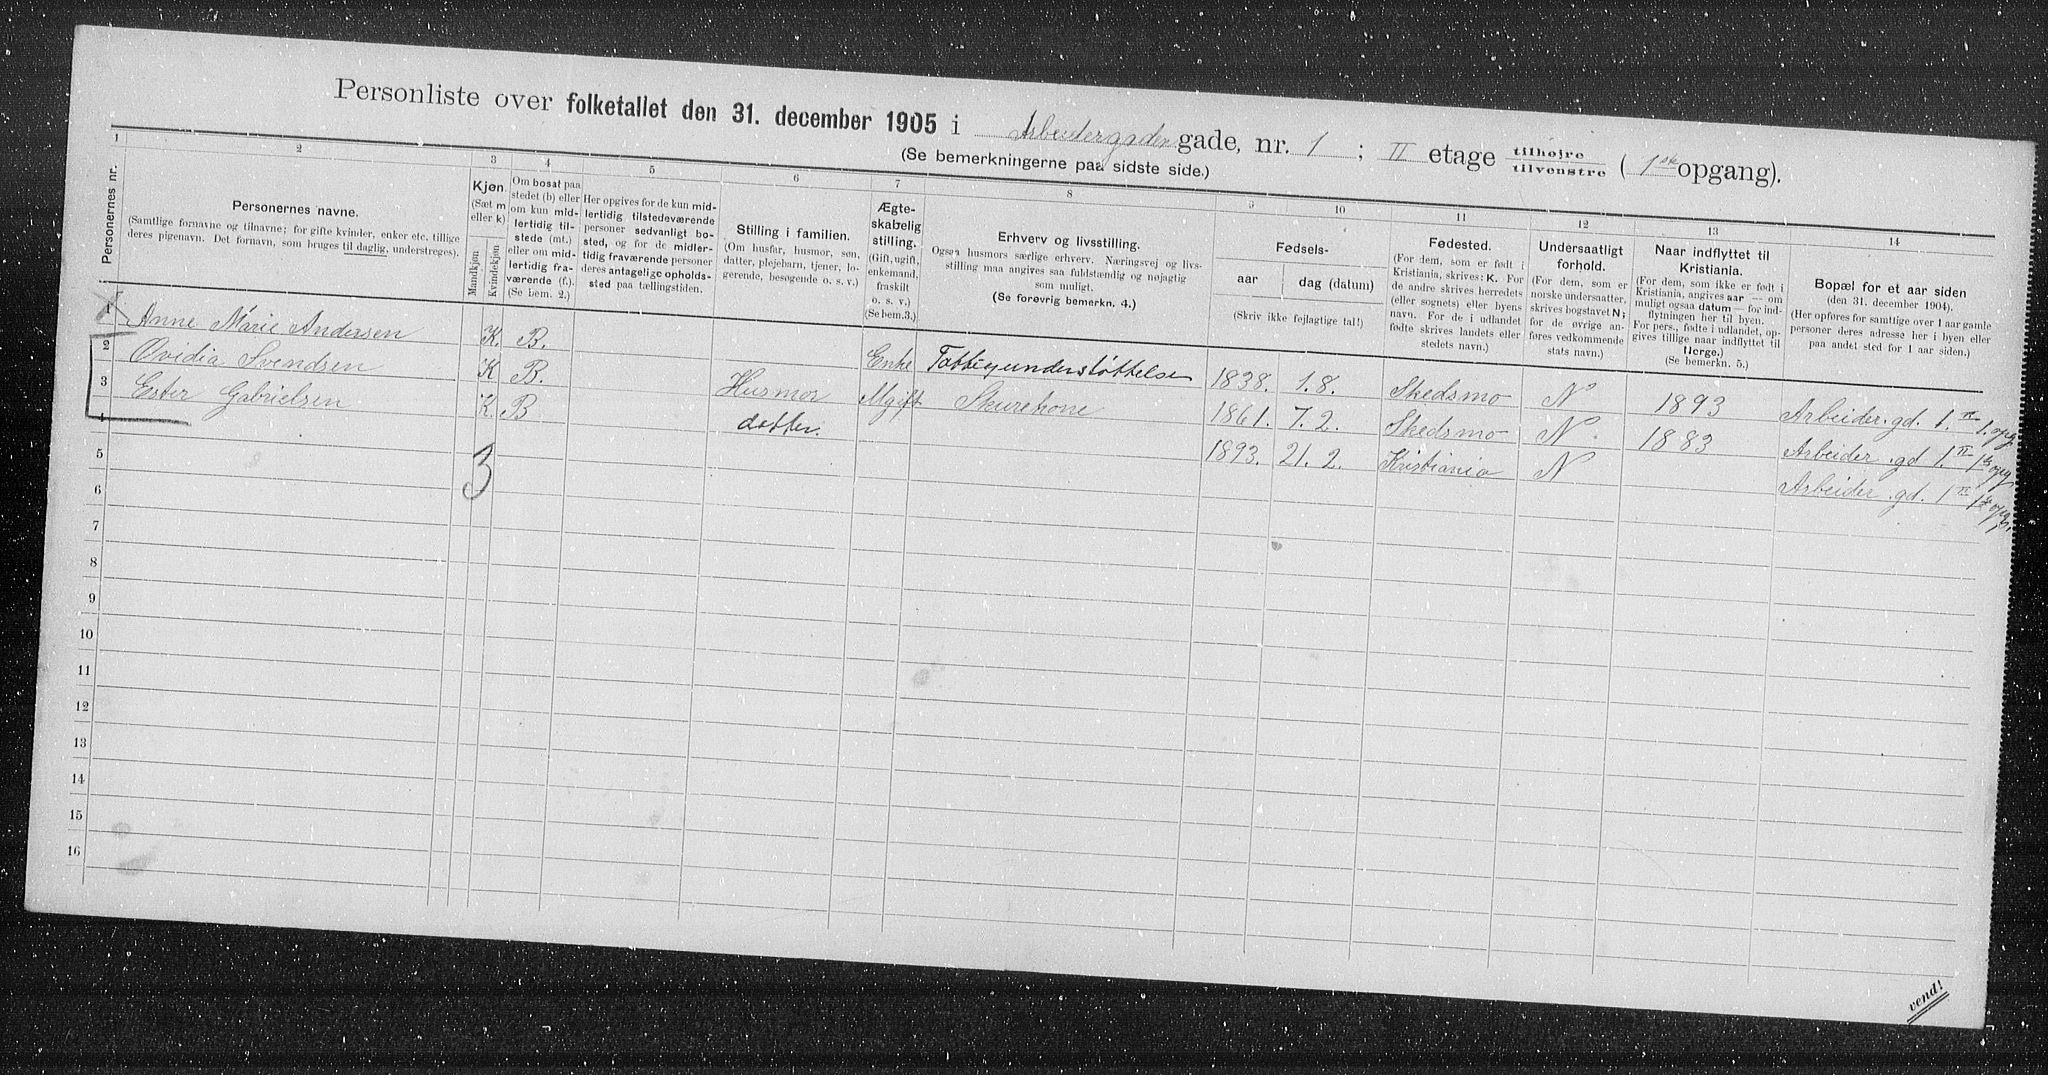 Personliste over folketallet den 31. december 1905 i Arbeidergaden gade, nr. 1 ; II etage tilhøjre tilvenstre ( 1ste opgang).
(Se bemerkningerne paa sidste side.)
1 2 3 4 5 6 7 8 9 10 11 12 13 14
Personernes nr.
Personernes navne.
(Samtlige fornavne og tilnavne; for gifte kvinder, enker etc. tillige
deres pigenavn. Det fornavn, som bruges til daglig, understreges).
Kjøn.
(Sæt m
eller k)
Mandkjøn
Kvindekjøn
Om bosat paa
stedet (b) eller
om kun mid-
lertidig til-
stede (mt.)
eller om mid-
lertidig fra-
værende (f.).
(Se bem. 2.)
Her opgives for de kun mid-
lertidig tilstedeværende
personer sedvanligt bo-
sted, og for de midler-
tidig fraværende personer
deres antagelige opholds-
sted paa tællingstiden.
Stilling i familien.
(Om husfar, husmor, søn,
datter, plejebarn, tjener, lo-
gerende, besøgende o. s. v.)
Ægte-
skabelig
stilling.
(Gift, ugift,
enkemand,
fraskilt
o. s. v.)
(Se bem.3.)
Erhverv og livsstilling.
Ogsaa husmors særlige erhverv. Næringsvej og livs-
stilling maa angives saa fuldstændig og nøjagtig
som muligt.
(Se forøvrig bemerkn. 4.)
Fødsels-
aar dag (datum)
(Skriv ikke fejlagtige tal!)
Fødested.
(For dem, som er født i
Kristiania, skrives: K. For
de andre skrives herredets
(eller sognets) eller byens
navn. For de i udlandet
fødte skrives landets eller
stedets navn.)
Undersaatligt
forhold.
(For dem, som er
norske undersaatter,
skrives bogstavet N;
for de øvrige an-
føres vedkommende
stats navn.)
Naar indflyttet til
Kristiania.
(For dem, som ikke er født i
Kristiania, angives aar — om
muligt ogsaa datum — for ind-
flytningen her til byen.
For pers., fødte i udlandet, op-
gives tillige naar indflyttet til
Norge.)
(Se bemerkn. 5.)
Bopæl for et aar siden
(den 31. december 1904).
(Her opføres for samtlige over 1 aar gamle
personer deres adresse her i byen eller
paa andet sted for 1 aar siden.)
1 Anne Marie Andersen K. B. Enke Fattigunderstøttelse 1838. 1.8. Skedsmo N 1893 Arbeider.gd. 1. II 1. opg.
2 Ovidia Svendsen K B. Husmor Ugift Skurekone 1861. 7.2. Skedsmo N. 1883 Arbeider.gd 1. II 1ste opg
3 Ester Gabrielsen K. B datter. 1893. 21.2. Kristiania N Arbeider.gd. 1 II 1ste opg.
4
3
5
6
7
8
9
10
11
12
13
14
15
16
vend!